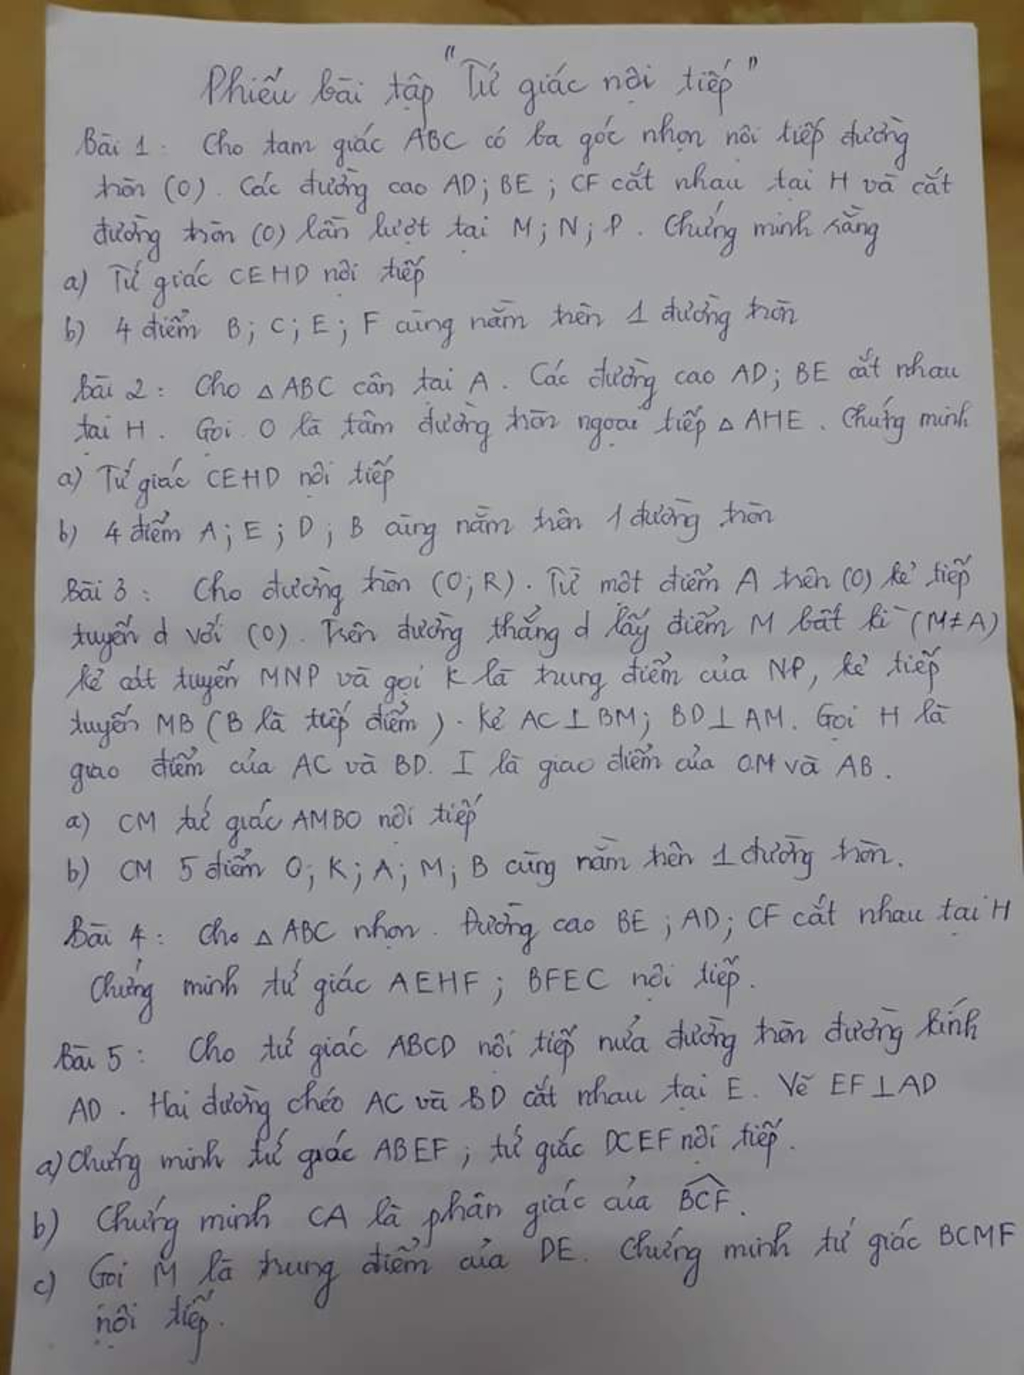 Phiếu bài tập "Tứ giác nội tiếp"
Bài 1: Cho tam giác ABC có ba góc nhọn nội tiếp đường
tròn (O). Các đường cao AD; BE; CF cắt nhau tại H và cắt
đường tròn (O) lần lượt tại M; N; P. Chứng minh rằng
a) Tứ giác CEHD nội tiếp
b) 4 điểm B; C; E; F cùng nằm trên 1 đường tròn
Bài 2: Cho △ ABC cân tại A. Các đường cao AD; BE cắt nhau
tại H. Gọi O là tâm đường tròn ngoại tiếp △ AHE. Chứng minh
a) Tứ giác CEHD nội tiếp
b) 4 điểm A; E; D; B cùng nằm trên 1 đường tròn
Bài 3: Cho đương tròn (O; R). Từ một điểm A trên (O) kẻ tiếp
tuyến d với (O). Trên đường thẳng d lấy điểm M bất kì (M≠A)
kẻ cát tuyến MNP và gọi K là trung điểm của NP, kẻ tiếp
tuyến MB (B là tiếp điểm). Kẻ AC⊥BM; BD⊥AM. Gọi H là
giao điểm của AC và BD. I là giao điểm của OM và AB.
a) CM tứ giác AMBO nội tiếp
b) CM 5 điểm O; K; A; M; B cùng nằm trên 1 đường tròn.
Bài 4: Cho △ ABC nhọn. Đường cao BE; AD; CF cắt nhau tại H
Chứng minh tứ giác AEHF; BFEC nội tiếp.
Bài 5: Cho tứ giác ABCD nội tiếp nửa đường tròn đường kính
AD. Hai đường chéo AC và BD cắt nhau tại E. Vẽ EF⊥AD
a) Chứng minh tứ giác ABEF; tứ giác DCEF nội tiếp.
b) Chứng minh CA là phân giác của BCF.
c) Gọi M là trung điểm của DE. Chứng minh tứ giác BCMF
nội tiếp.